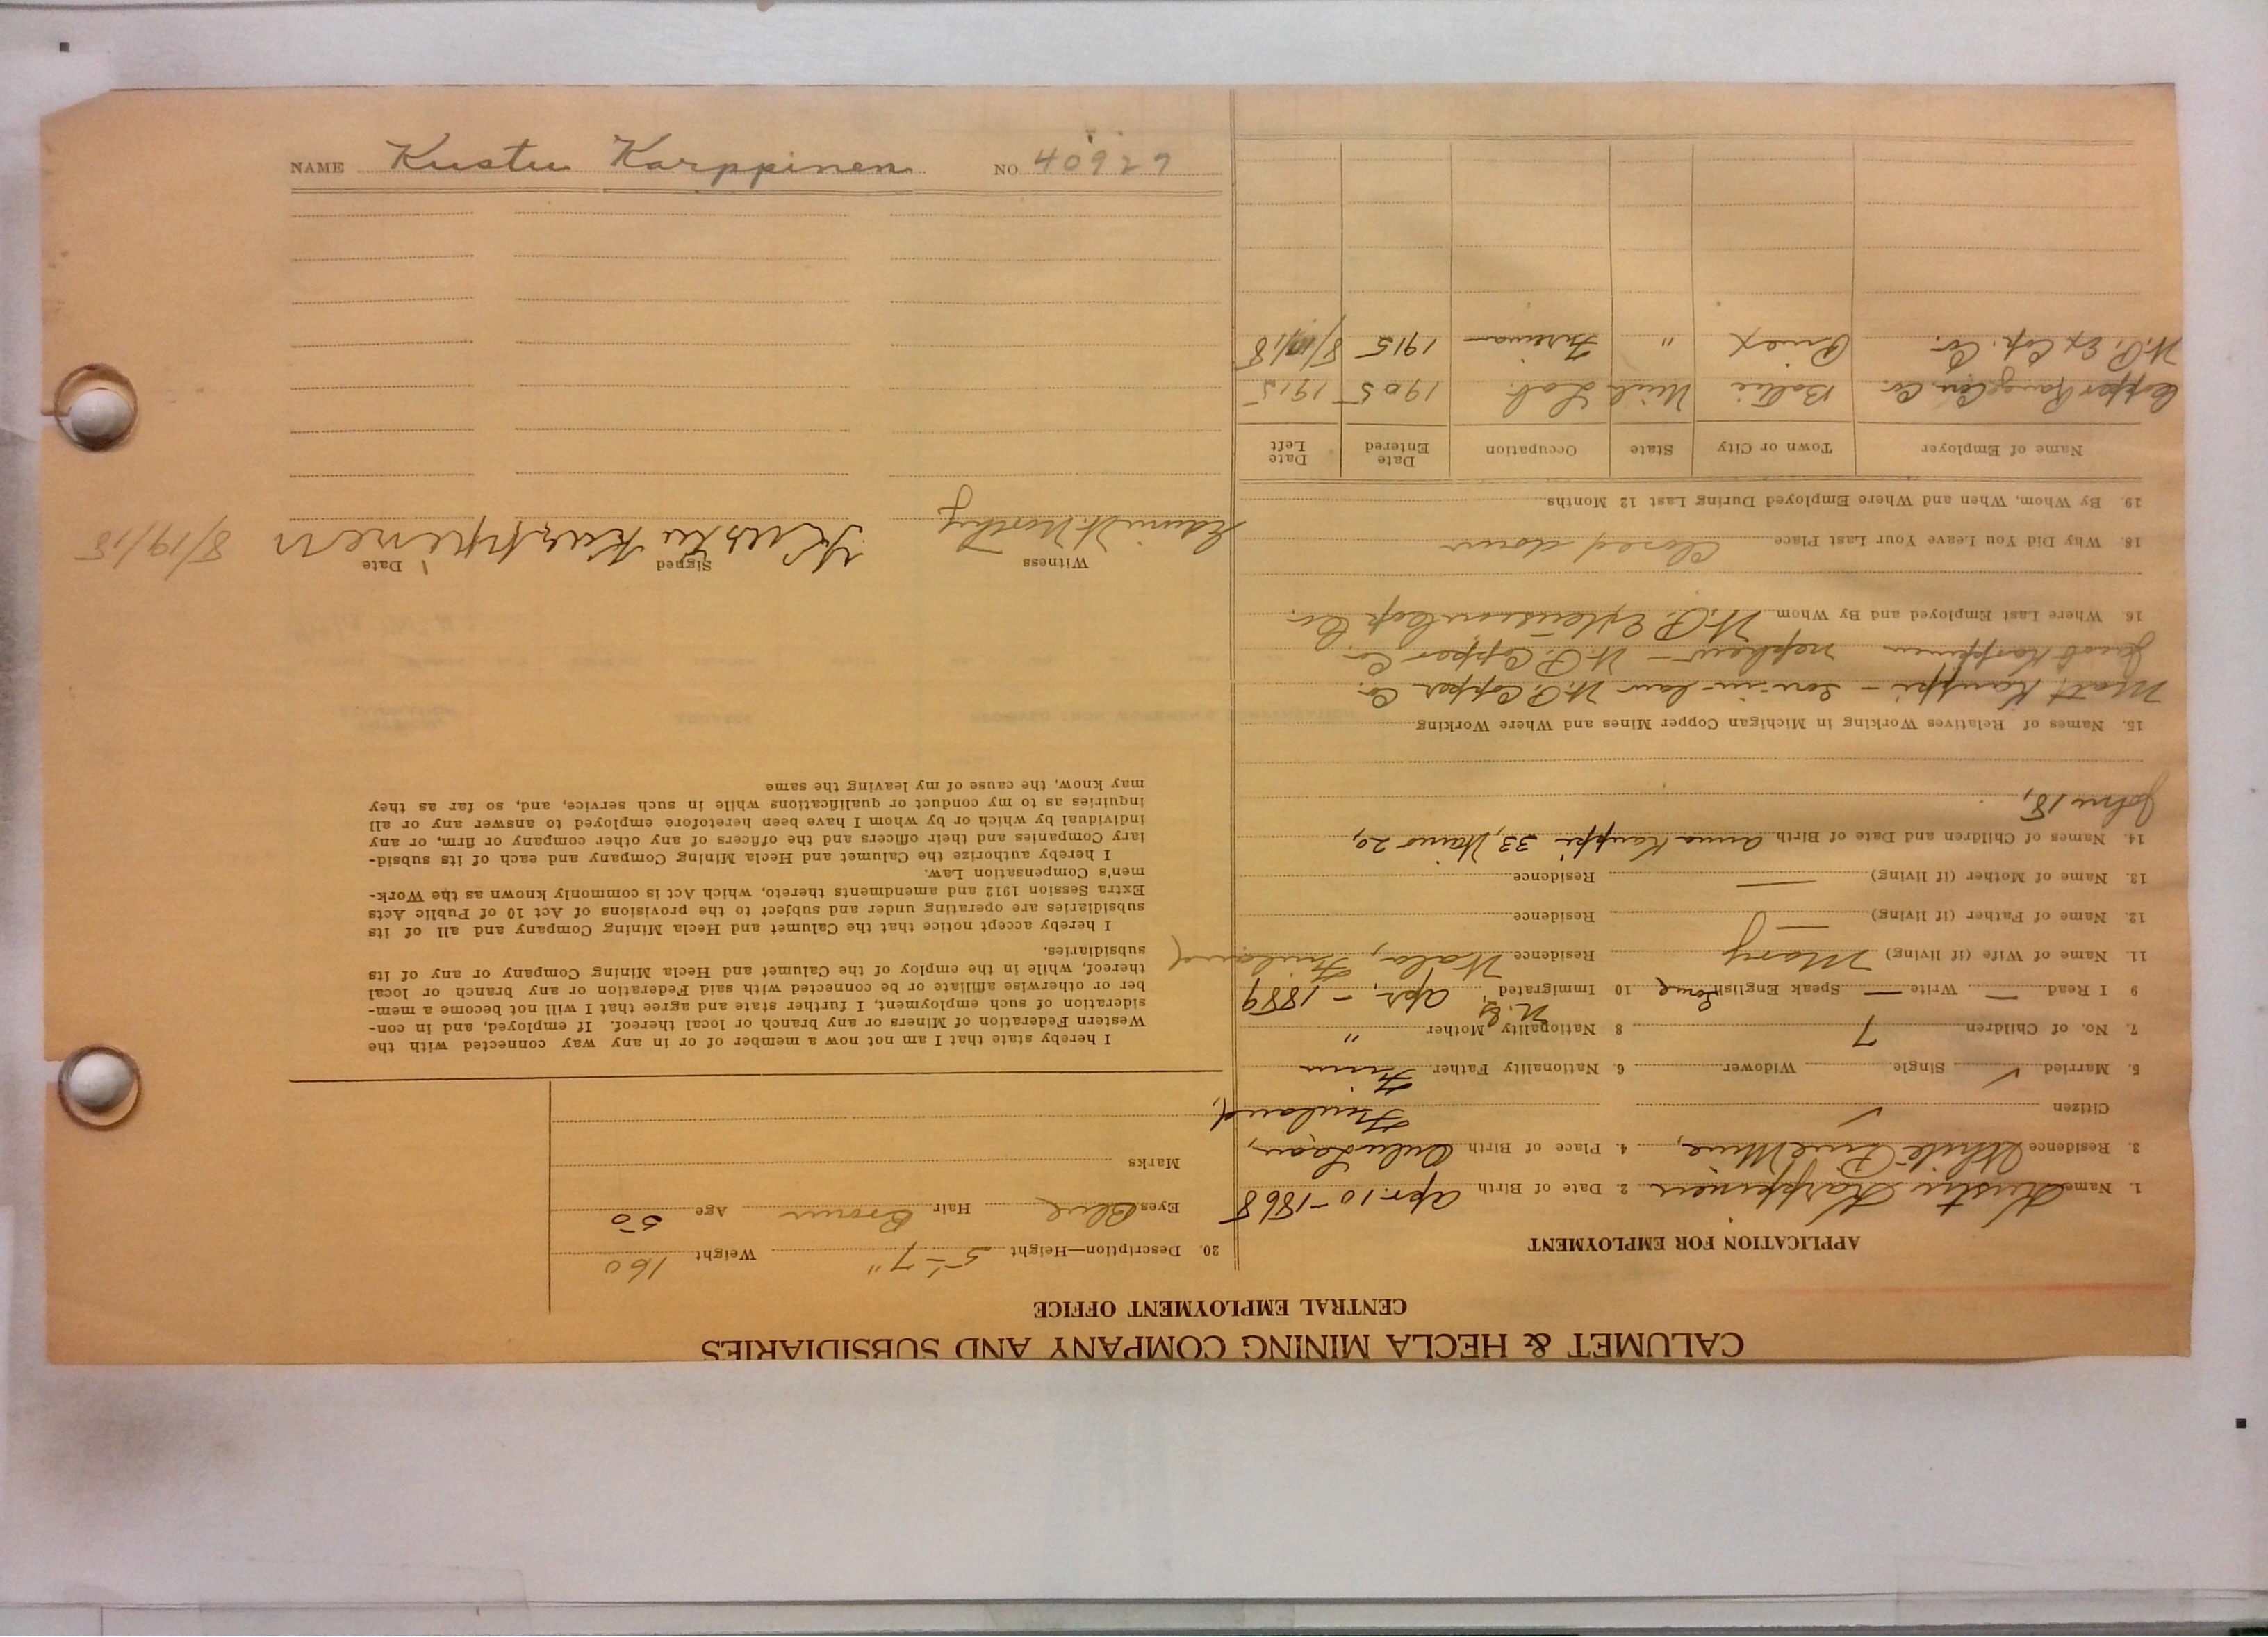 CALUMET & HECLA MINING COMPANY AND SUBSIDIARIES
CENTRAL EMPLOYMENT OFFICE
APPLICATION FOR EMPLOYMENT
1. Name Kustu Karppinen 2. Date of Birth Apr. 10-1868
3. Residence White Pine Mine, 4. Place of Birth Oulu Laani,
Finland,
Citizen ✓
5. Married ✓ Single Widower 6. Nationality Father Finn
7. No. of Children 7 8 Nationality Mother "
9 I Read — Write — Speak English Some 10 Immigrated Apr. - 1889
11. Name of Wife (if living) Mary Residence Finland
12. Name of Father (if living) — Residence
13. Name of Mother (if living) — Residence
14. Names of Children and Date of Birth Anna Kauppi 33, Waino 20,
John 18,
15. Names of Relatives Working in Michigan Copper Mines and Where Working
Matt Kauppi - son-in-law W.P. Copper Co.
Jacob Karppinen nephew - W.P. Copper Co
16. Where Last Employed and By Whom W.P. Extension Cop Co.
18. Why Did You Leave Your Last Place Closed down
19. By Whom, When and Where Employed During Last 12 Months
Name of Employer Town or City State Occupation Date Entered Date Left
Copper Range Con. Co. Baltic Mich Lab. 1905 1915
W.P. Ex Cop. Co. " Fireman 1915 8/10/18
20. Description—Height 5'-7" Weight 160
Eyes Blue Hair Brown Age 50
Marks
I hereby state that I am not now a member of or in any way connected with the
Western Federation of Miners or any branch or local thereof. If employed, and in con-
sideration of such employment, I further state and agree that I will not become a mem-
ber or otherwise affiliate or be connected with said Federation or any branch or local
thereof, while in the employ of the Calumet and Hecla Mining Company or any of its
subsidiaries.
I hereby accept notice that the Calumet and Hecla Mining Company and all of its
subsidiaries are operating under and subject to the provisions of Act 10 of Public Acts
Extra Session 1912 and amendments thereto, which Act is commonly known as the Work-
men's Compensation Law.
I hereby authorize the Calumet and Hecla Mining Company and each of its subsid-
iary Companies and their officers and the officers of any other company or firm, or any
individual by which or by whom I have been heretofore employed to answer any or all
inquiries as to my conduct or qualifications while in such service, and, so far as they
may know, the cause of my leaving the same
Witness Signed Date
Kustu Karppinen 8/19/18
NAME Kustu Karppinen NO 40929